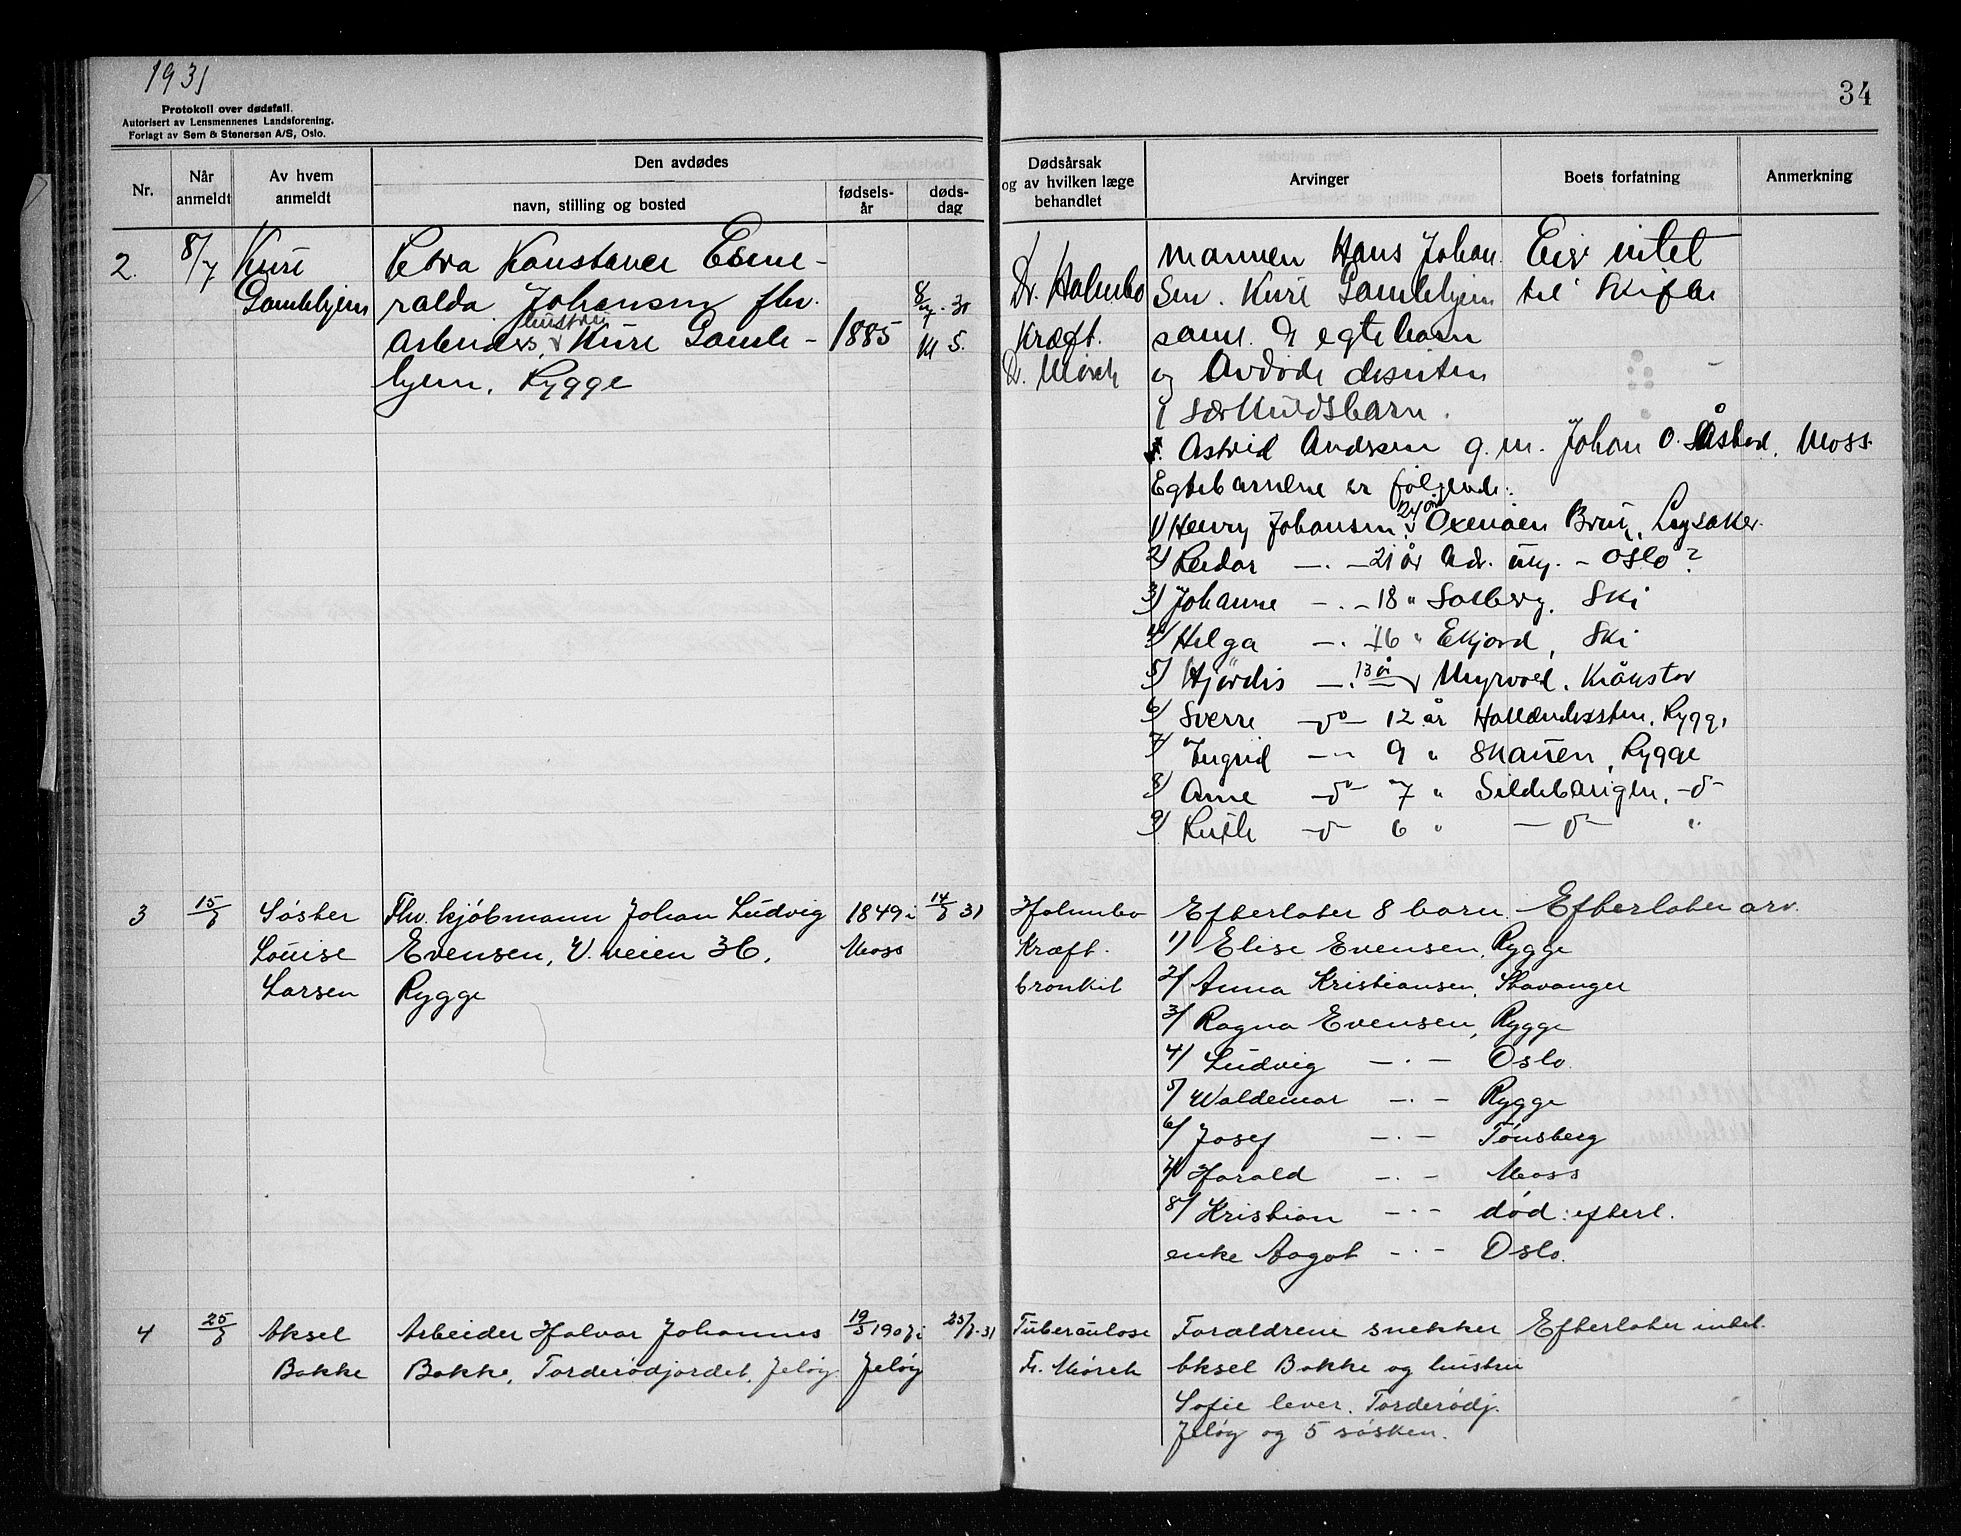 1931
Protokoll over dødsfall.
Autorisert av Lensmennenes Landsforening.
Forlagt av Sem & Stenersen A/S, Oslo.
34
Nr.
Når anmeldt
Av hvem anmeldt
Den avdødes
navn, stilling og bosted
fødsels-år
døds-dag
Dødsårsak og av hvilken læge behandlet
Arvinger
Boets forfatning
Anmerkning
2.
8/7
Kure
Gamlehjem
Petra Konstance Esme-
ralda Johansen fhv.
Arbeiders hustru Kure Gamle-
hjem, Rygge
1885
8/7-31
Kl 5.
Dr. Holmbo
Kræft.
Dr. Mørch
Mannen Hans Johan
sen. Kure Gamlehjem
saml. 9 egte barn
og Avdøde desuten
1 særkuldsbarn.
Astrid Andrsen g. m. Johan O. Åsted, Moss.
Egtebarnene er følgende:
1) Henry Johansen 24 år Oxenøen Brug, Lysaker.
2) Reidar -.- 21 år Adr. - Oslo?
3) Johanne -.- 18 " Solberg, Ski
4) Helga -.- 16 " Ekjord, Ski
5) Hjördis -.- 13 år Myrvold, Kråkstad
6) Sverre -do- 12 år Hollendersten, Rygge
7) Ingrid -"- 9 " Skauen, Rygge
8) Arne -do- 7 " Sildebaugen, -d-
9) Ruth -d- 6 " -d- "
Eier intet
til skifte
3
15/8
Søster
Louise
Larsen
Fhv. kjøbmann Johan Ludvig
Evensen, V. veien 36,
Rygge
1849 i
Moss
14/8 31
Holmbo
Kræft.
bronkit
Efterlater 8 barn. Efterlater arv.
1) Elise Evensen, Rygge
2/ Anna Kristiansen, Stavanger
3/ Ragna Evensen, Rygge
4/ Ludvig -.- Oslo.
5/ Waldemar -.- Rygge
6/ Josef -.- Tønsberg
7/ Harald -.- Moss
8/ Kristian -.- død: efterl.
enke Aagot -.- Oslo.
4
25/8
Aksel
Bakke
Arbeider Halvar Johannes
Bakke, Torderødjordet, Jeløy.
Jeløy
25/8-31
Tuberculose
Mørch
Foræltrene snekker
Aksel Bakke og hustru
Sofie lever. Torderødj.
Jeløy og 5 søsken.
Efterlater intet.